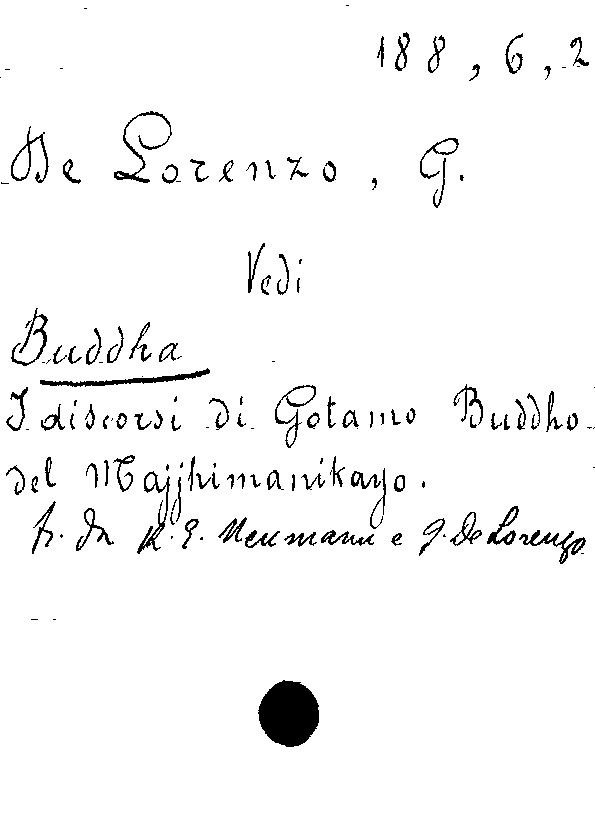 188, 6, 2
De Lorenzo, G.
Vedi
Buddha
I discorsi di Gotamo Buddho
del Majjhimanikayo.
K. E. Neumann e G. De Lorenzo